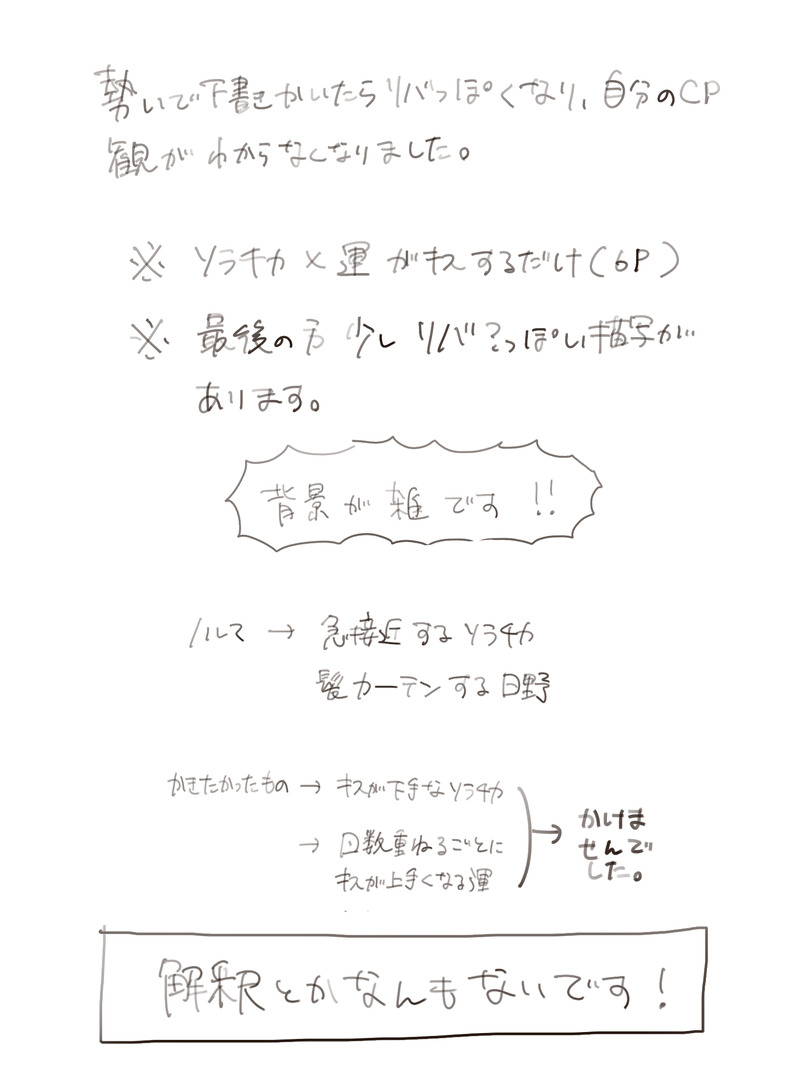 勢いで下書きかいたらリバっぽくなり、自分のCP
観がわからなくなりました。
※ ソラチカ×運がキスするだけ(6P)
※ 最後の方少しリバ?っぽい描写が
あります。
背景が雑です!!
ノルマ → 急接近するソラチカ
髪カーテンする日野
かきたかったもの → キスが下手なソラチカ
→ 回数重ねるごとに
キスが上手くなる運
→ かけま
せんで
した。
解釈とかなんもないです!